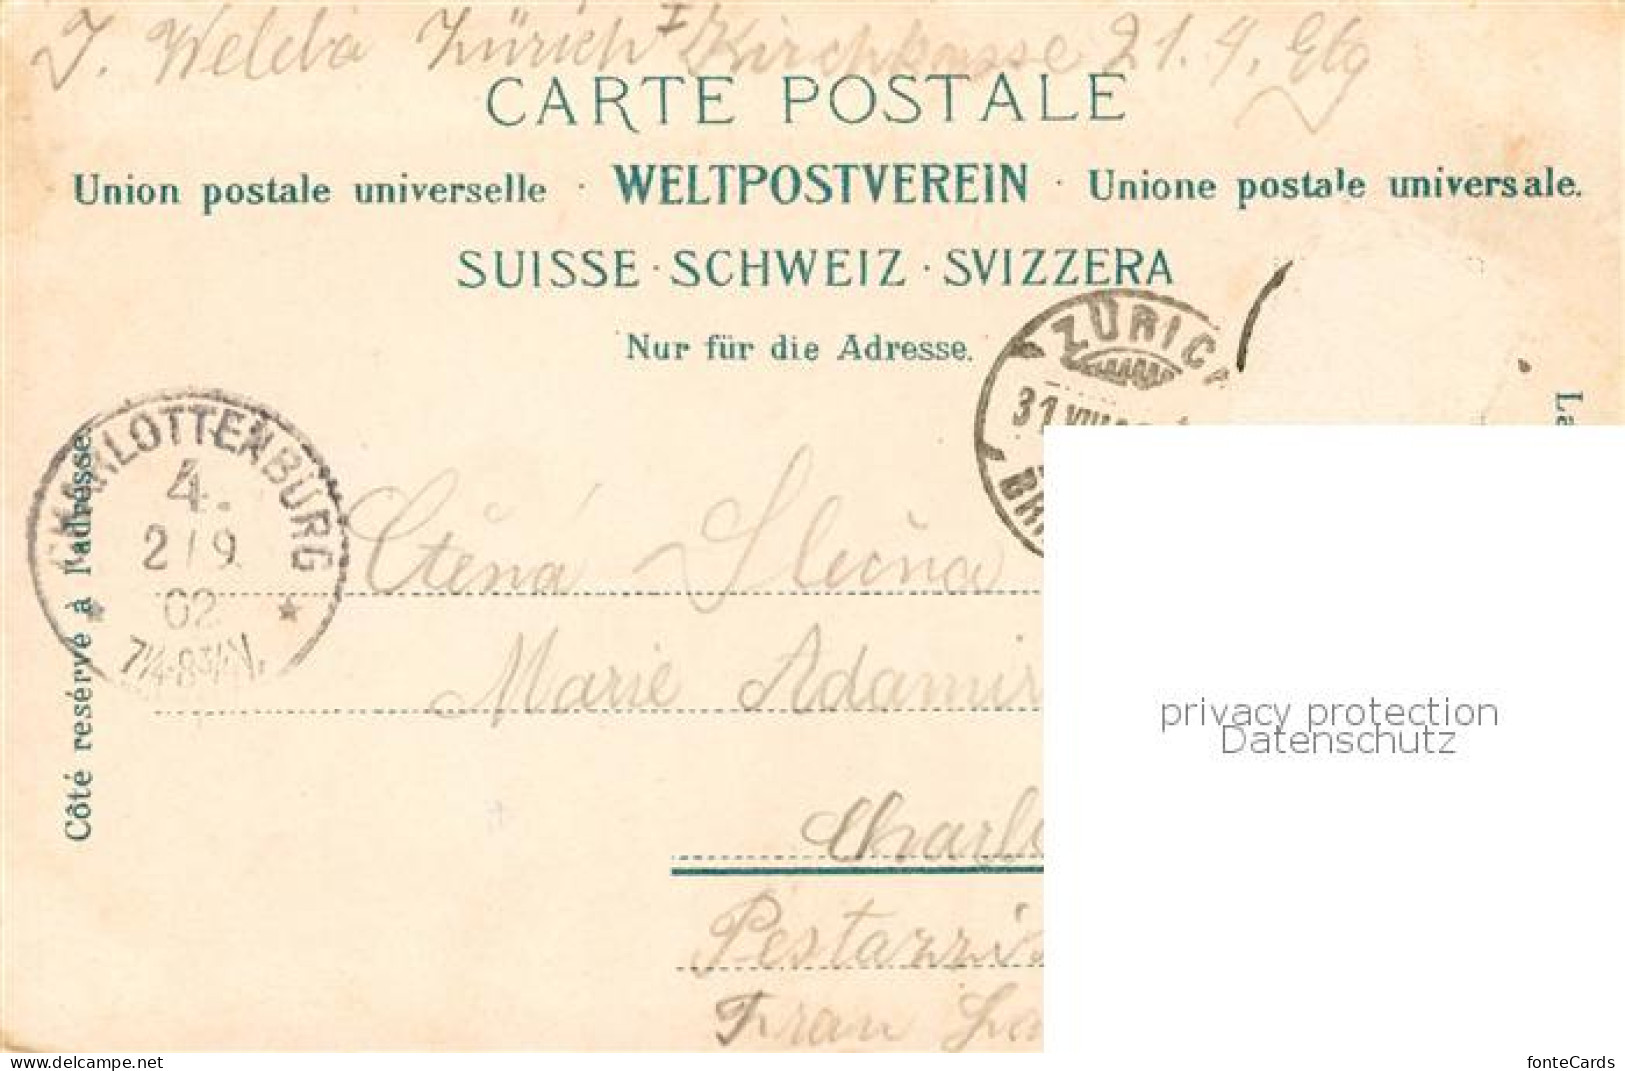 J. Welcba Zürich I Kirchgasse 21. 4. Etg
CARTE POSTALE
Union postale universelle · WELTPOSTVEREIN · Unione postale universale.
SUISSE · SCHWEIZ · SVIZZERA
Nur für die Adresse.
ZÜRICH
31 VIII
Côté resérvé à l'adresse.
CHARLOTTENBURG
4.
2/9
02
7¼-8¾N.
Ctěná Slečna
Marie Adamir
Charl
Pestazzi
Frau La
privacy protection
Datenschutz
www.delcampe.net
fonteCards